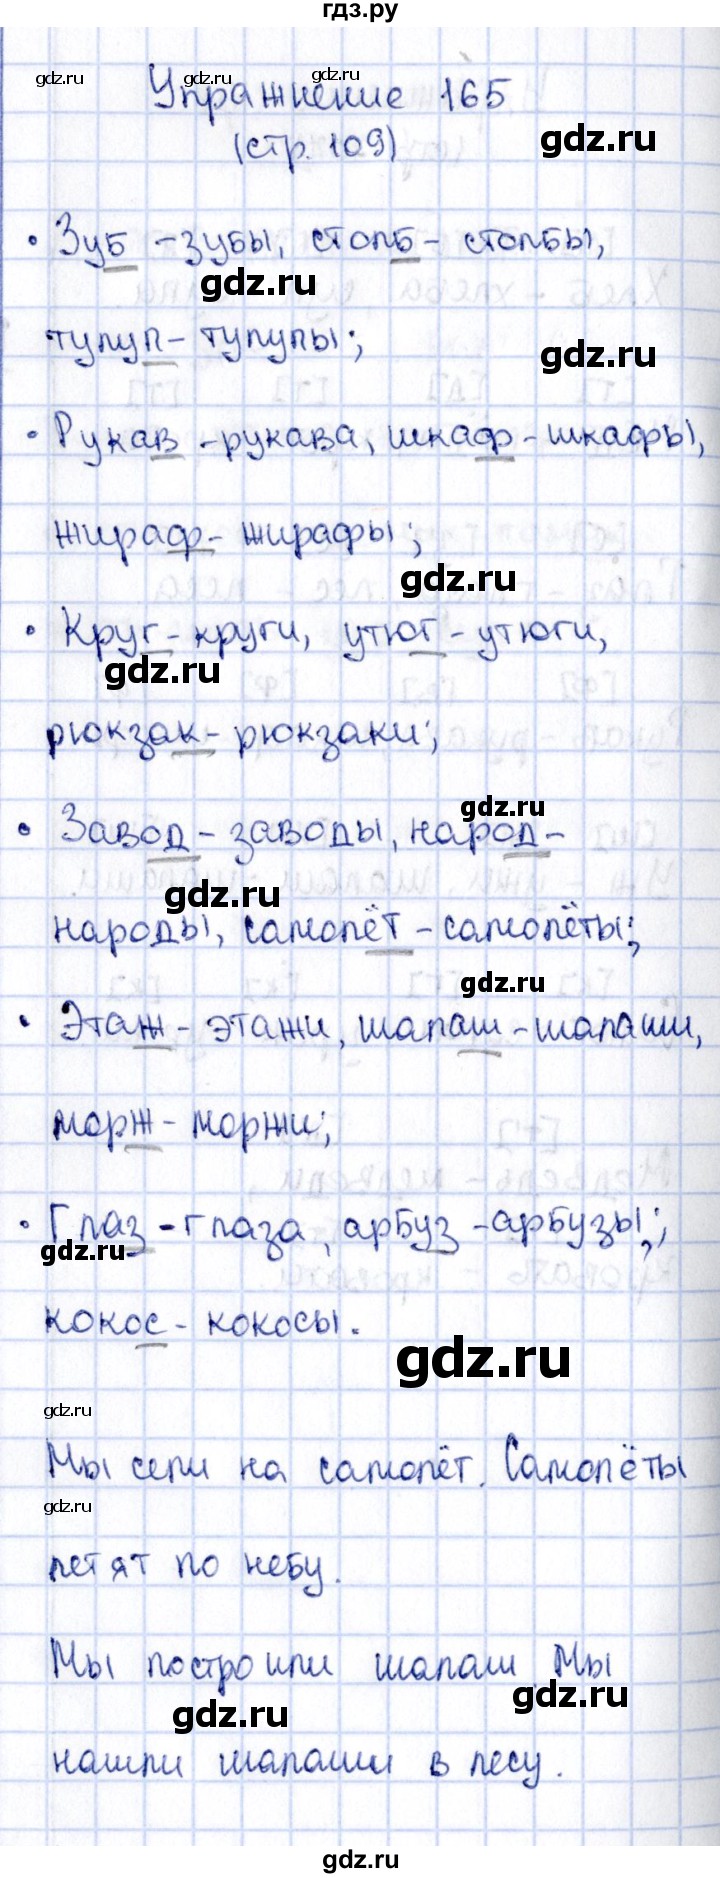 гдз.ру
gdz.ru gdz.ru gdz.ru
Упражнение 165
gdz.ru
(стр. 109)
• Зуб - зубы, столб - столбы,
gdz.ru
тулуп - тулупы;
gdz.ru
• Рукав - рукава, шкаф - шкафы,
жираф - жирафы;
gdz.ru
• Круг - круги, утюг - утюги,
gdz.ru
рюкзак - рюкзаки;
gdz.ru
• Завод - заводы, народ -
gdz.ru
народы, самолёт - самолёты;
gdz.ru
• Этаж - этажи, шалаш - шалаши,
морж - моржи;
• Глаз - глаза, арбуз - арбузы;
gdz.ru
кокос - кокосы.
gdz.ru
gdz.ru
Мы сели на самолёт. Самолёты
gdz.ru
летят по небу.
Мы построили шалаш. Мы
gdz.ru
gdz.ru
нашли шалаши в лесу.
gdz.ru